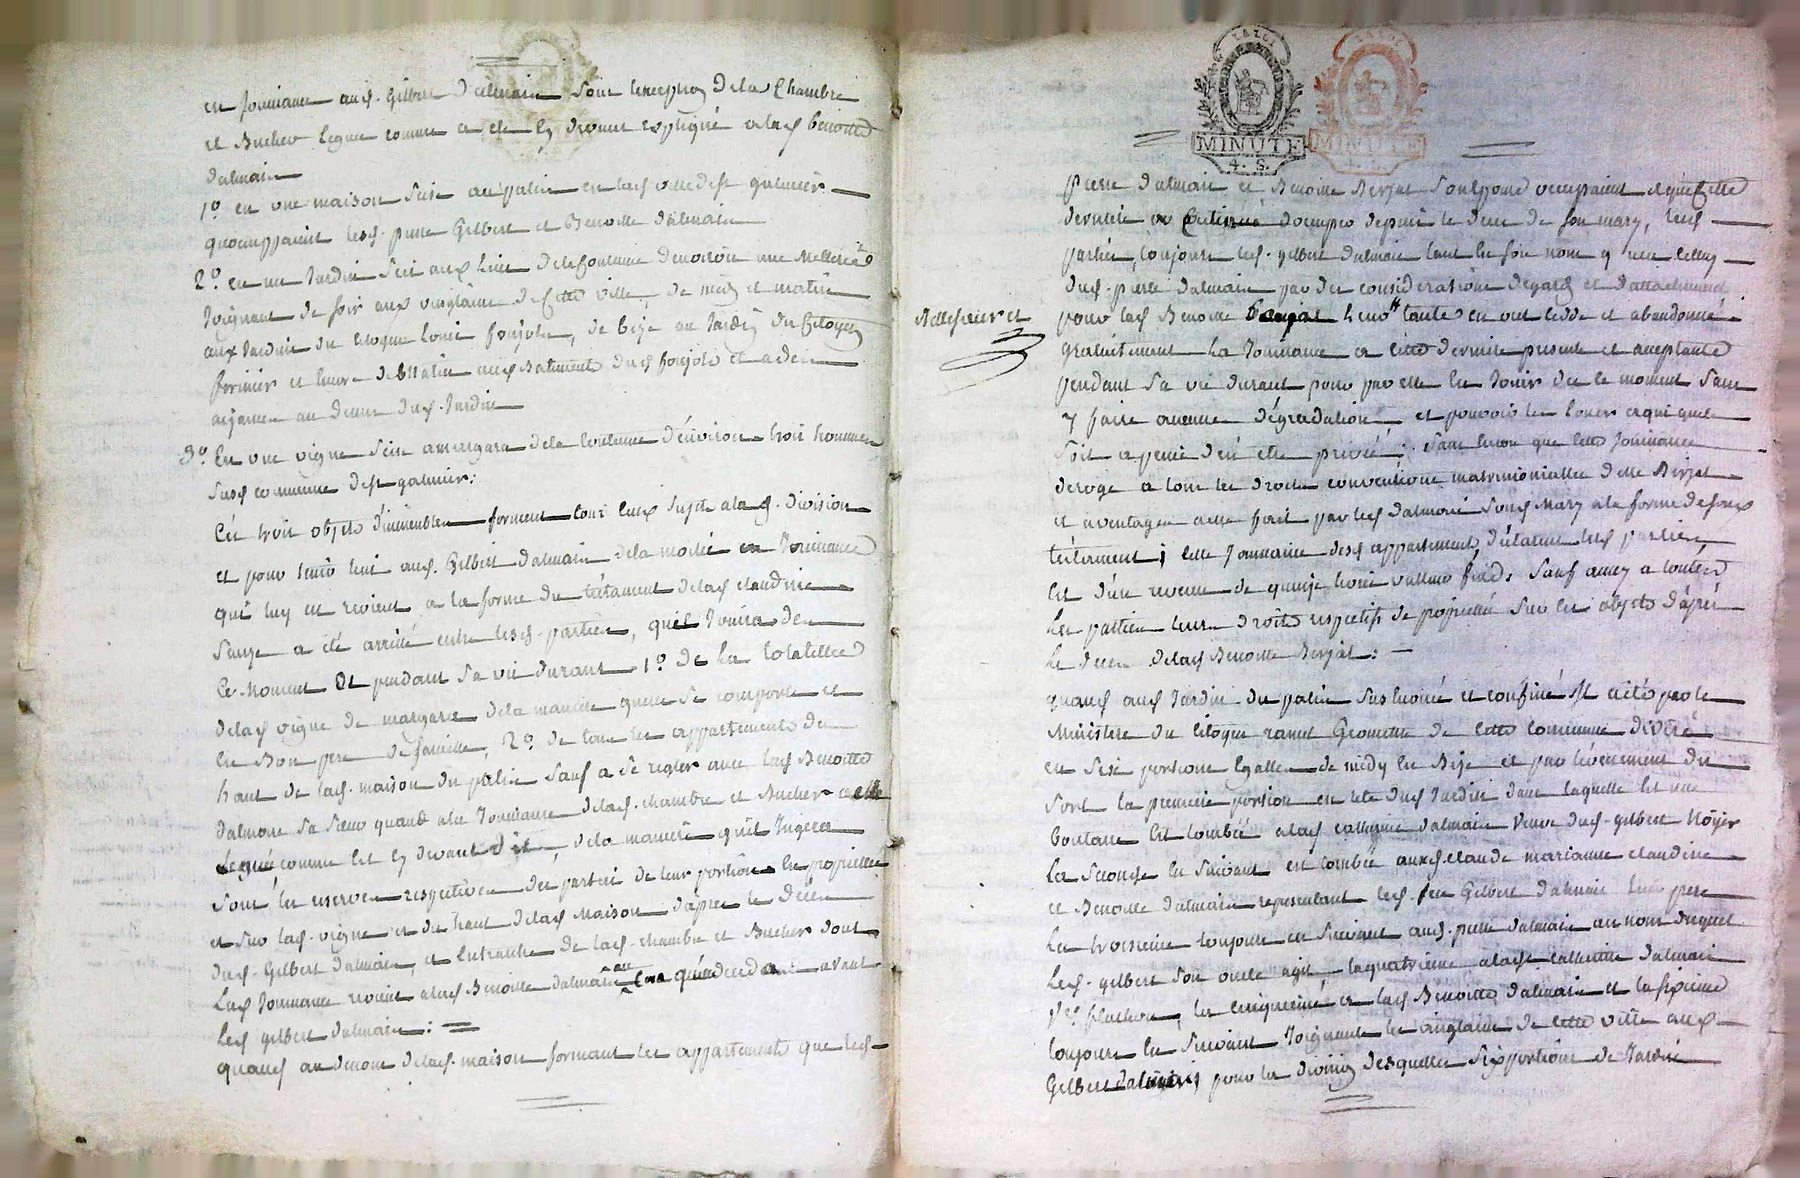 en jouissance aud. Gilbert Dalmain sous l'exception de la Chambre
et Bucher legué comme a été cy devant expliqué a lad benoitte
dalmain
1º en une maison sise au palais en lad ville de st galmier
qu'occuppaint lesd. pierre Gilbert et Benoitte dalmain
2º en un Jardin sis aux lieu de la fontaine d'environ une Metterée
Joignant de soir aux vingtaine de Cette ville, de midy et matin
aux Jardin du citoyen Louis foujols, de bize au Jardin du Citoyen
et encore de Matin aux Batiments dud foujols et a des
aizances au dessus dud. Jardin
3º En une vigne sise a margara de la contenue d'environ trois hommées
susd commune de st galmier:
Ces trois objets d'immeubles forment tous ceux sujets a lad. division
et pour tenir lieu aud. Gilbert dalmain de la moitié en Jouissance
qui luy en revient a la forme du téstament de lad claudine
a été arrêtté entre lesd. parties, qu'il Jouira des
Ce Moment Et pendant sa vie durant 1º de La totallité
de lad vigne de margara de la maniere quelle se comporte et
en Bon pere de famille, 2º de tous les appartements du
haut de lad. maison du palais sauf a se regler avec lad Benoitte
dalmain sa sœur quand a la Jouissance de lad. chambre et Bucher a elle
legué comme est cy devant dit, de la maniere qu'il Jugera
sous les reserves respectives des parties de leur portion en proprietté
et sur lad. vigne et du haut de lad Maison d'après le décès
dud. Gilbert dalmain, et lentrante de lad. chambre et Bucher dont
Lad Jouissance revient a lad Benoitte dalmain au cas quil decedat avant
Led gilbert dalmain:
quand au dessous de lad. maison formant les appartements que led.
MINUTE
4. S.
MINUTE
4. S.
pierre dalmain et Benoitte Berjat son epoux occupaient et que Cette
derniere a Continué d'occuper depuis le deces de son mary, lesd
parties, toujours led. gilbert dalmain tant en son nom q
dud. pierre dalmain par des considerations d'egards et d'attachement
Bellesœur et
pour lad Benoitte Berjat leur tante en ont cédde et abandonné
gratuitement La Jouissance a cette derniere presente et acceptante
pendant sa vie durant pour par elle en Jouir des ce moment sans
y faire aucune dégradation et pouvoir les louer a qui que ce
soit a peine d'en etre privée; sans que cette Jouissance
deroge a tous les droits conventions matrimonialles delle Berjat
et aventages a elle fait par led dalmain sond Mary a la forme de son
téstament; cette Jouissance desd appartement, déclarent lesd parties
Est d'un revenu de quinze livres valleur fixe: sauf aussy a toutes
Les parties leurs droits respectifs de proprietté sur les objets d'après
Le decès de lad Benoitte Berjat:
quand aud Jardin du palais susenoncé et confiné Il a été par le
Ministere du citoyen ramut Geometre de cette commune divisé
en six portions Egalles de midy en Bize et par lévénement du
sort la premiere portion en tete dud Jardin dans laquelle est une
Est tombée a lad catherine dalmain Veuve dud. gilbert Nöyer
La seconde En suivant est tombée auxd. claude marianne claudine
et Benoitte dalmain representant led. feu Gilbert dalmain leur pere
La troisieme toujours en suivant aud. pierre dalmain au nom duquel
Led. gilbert son oncle agit la quatrieme a lad. catherine dalmain
, la cinquieme a lad Benoitte dalmain et la sixieme
toujours en suivant Joignant les vingtaine de cette ville aud
Gilbert dalmain, pour la division desquelles six portions de Jardin